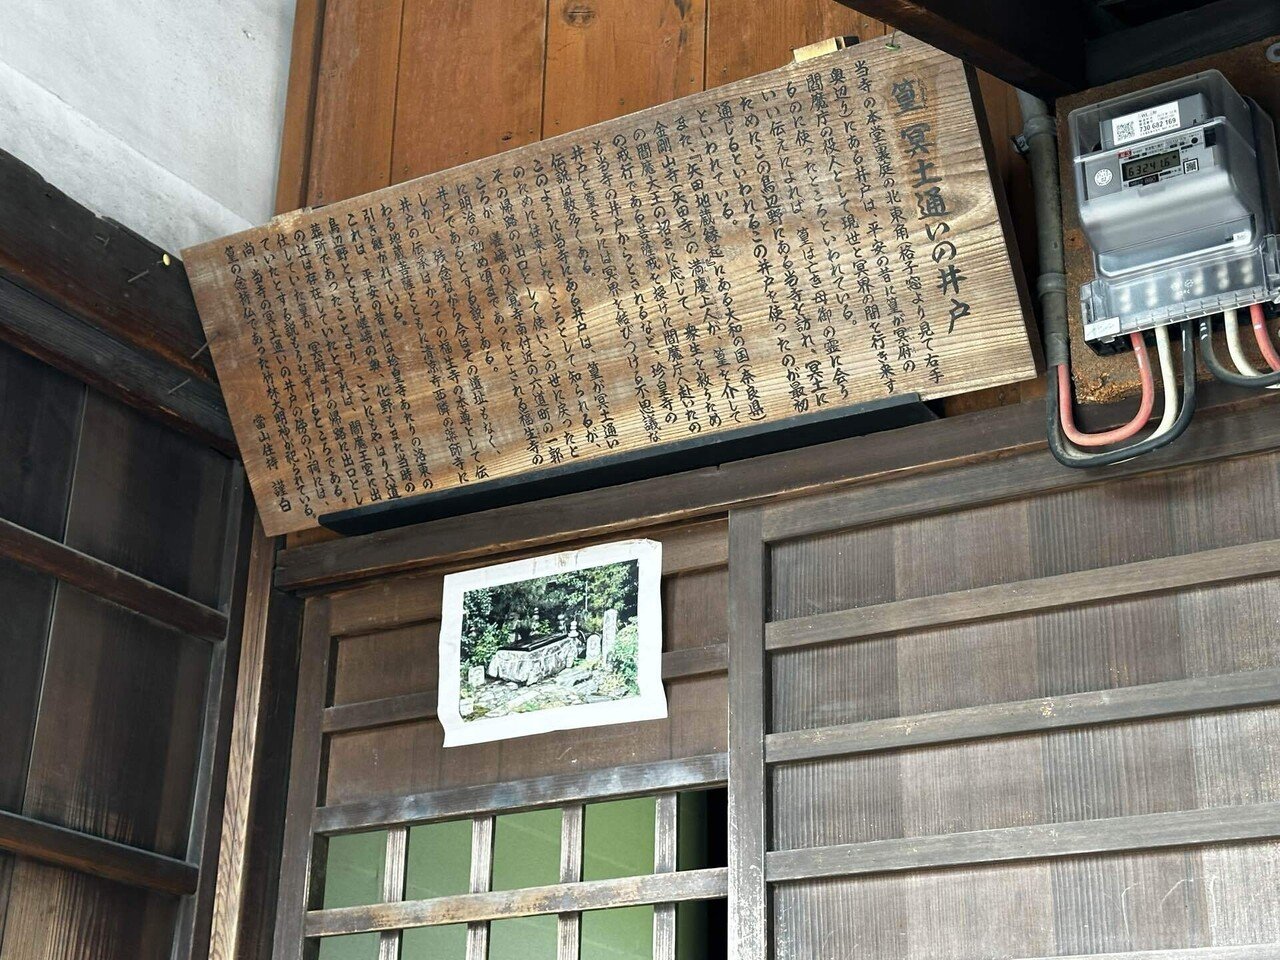 篁 冥土通いの井戸
当寺の本堂裏庭の北東角(格子窓より見て右手
奥辺り)にある井戸は、平安の昔に篁が冥府の
閻魔庁の役人として現世と冥界の間を行き来す
るのに使ったところといわれている。
いい伝えによれば、篁は亡き母御の霊に会う
ためにこの鳥辺野にある当寺を訪れ、冥土に
通じるといわれるこの井戸を使ったのが最初
といわれている。
また「矢田地蔵縁起」にある大和の国(奈良県)
金剛山寺(矢田寺)の満慶上人が、篁を介して
の閻魔大王の招きに応じて、衆生を救うため
の戒行である菩薩戒を授けに閻魔庁へ赴いたの
も当寺の井戸からとされるなど、珍皇寺の
井戸と篁さらには冥界を結びつける不思議な
伝説は数多くある。
このように当寺にある井戸は、篁が冥土通い
のためにはいったところとして知られるが、
その帰路の出口として使いこの世に戻ったと
ころが、嵯峨の大覚寺南付近の六道町の一郭
に明治の初め頃まであったとされる福生寺の
井戸であるとする説もある。
しかし、残念ながら今はその遺址もなく、
井戸の伝承はかつての福生寺の本尊として伝
わる地蔵菩薩とともに清凉寺西隣の薬師寺に
引き継がれている。
これは、平安の昔には珍皇寺あたりの洛東の
鳥辺野とともに嵯峨の奥、化野もまた当時の
墓所であったことより、ここにもやはり六道
の辻は存在していたとすれば、閻魔王宮に出
仕していた篁が、冥府よりの帰路に出口とし
ていたとする説もうなずけるところである。
尚、当寺の冥土通いの井戸の傍の小祠には、
篁の念持仏であった竹林大明神が祀られている。
当山住持 謹白
730 682 169